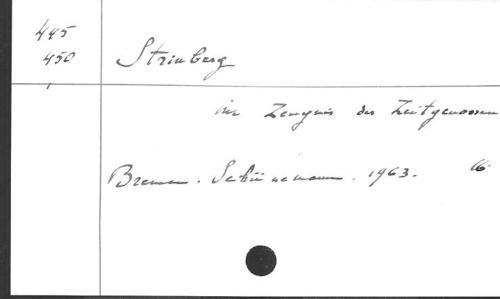 445
450 Strinberg
im Zeugnis der Zeitgenossen
Bremen. Schünemann. 1963. 16.